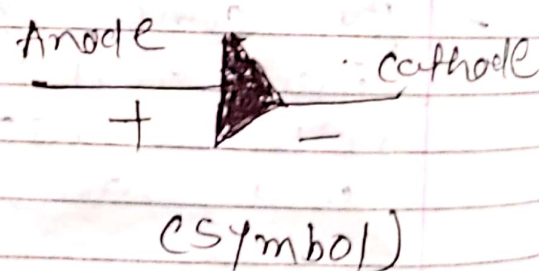 Anode
Cathode
+ -
(Symbol)